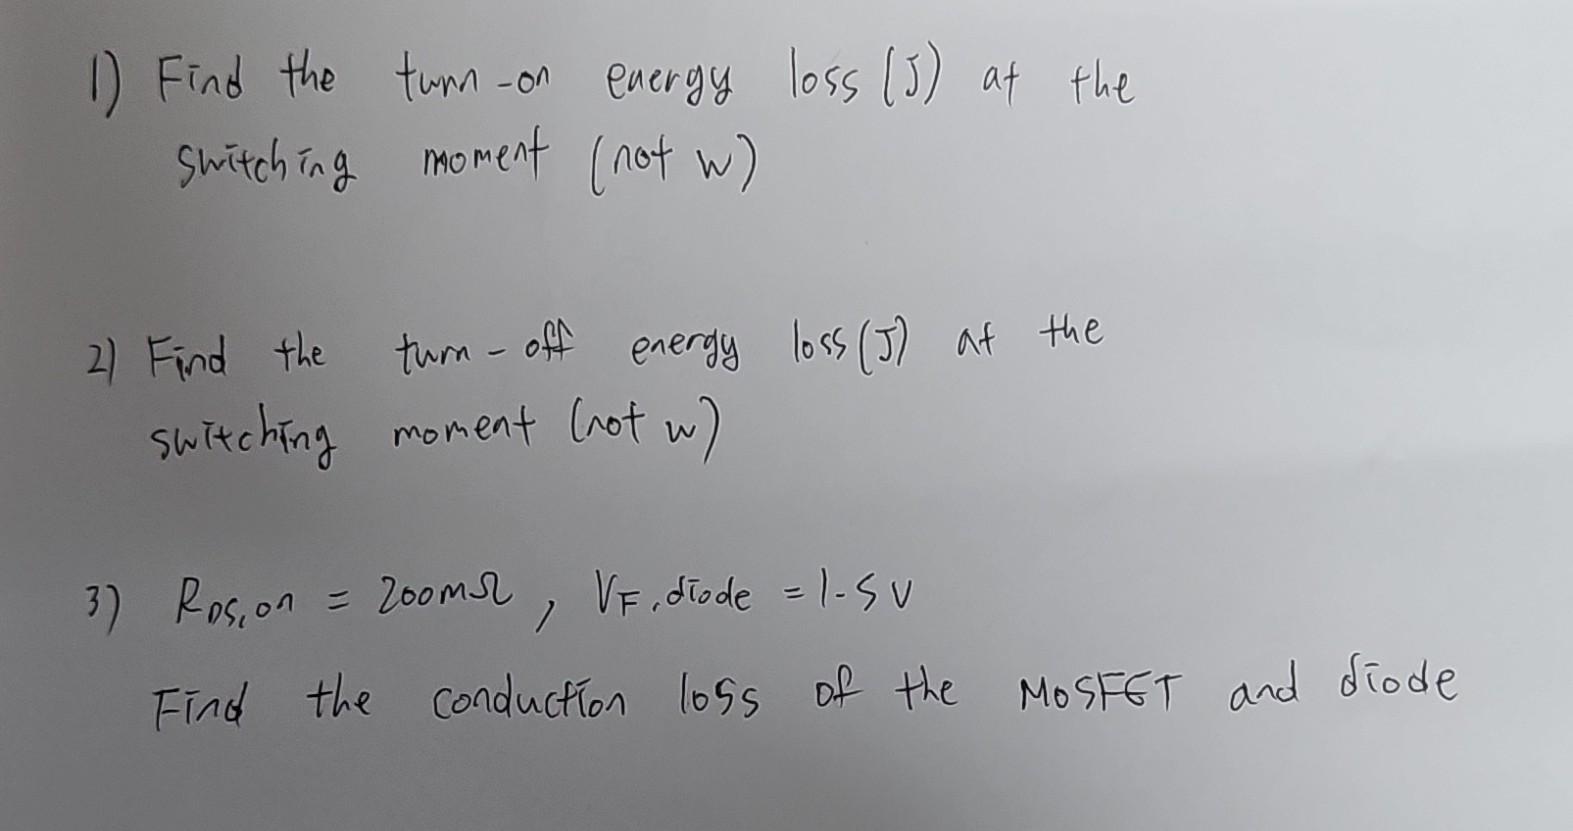 1) Find the turn-on energy loss (J) at the
switching moment (not W)
2) Find the turn-off energy loss (J) at the
switching moment (not W)
3) RDS,on = 200mΩ, VF,diode = 1.5V
Find the conduction loss of the MOSFET and diode